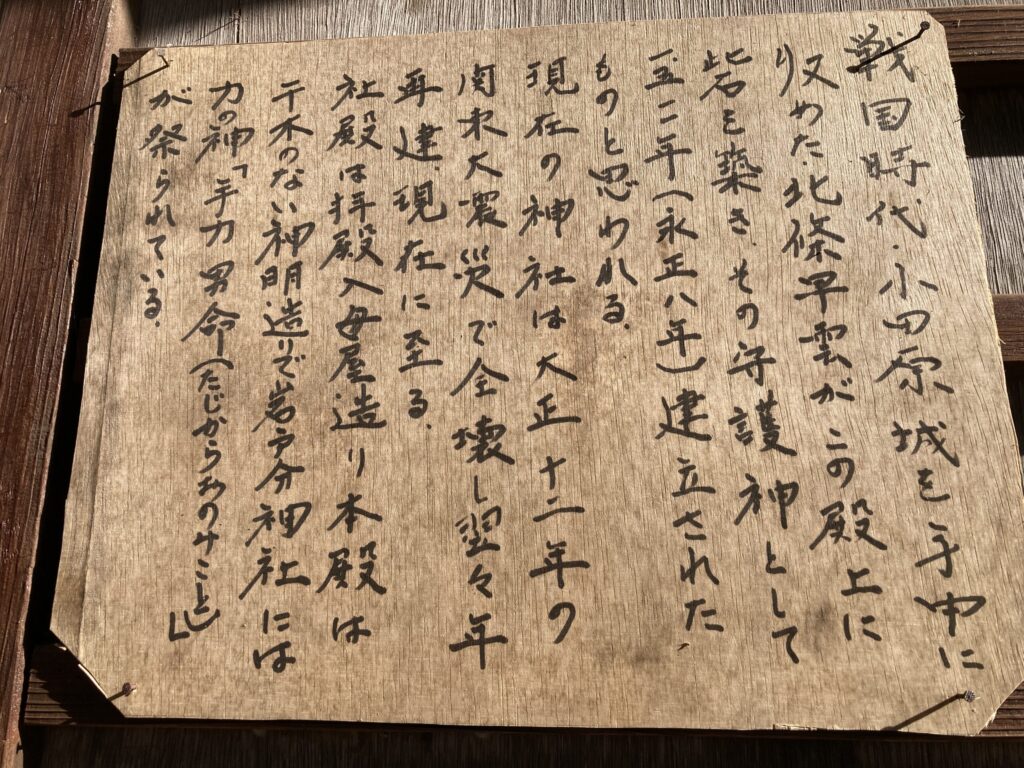 戦国時代、小田原城を手中に
収めた、北條早雲がこの殿上に
砦を築き、その守護神として
一五一二年(永正八年)建立された
ものと思われる。
現在の神社は大正十二年の
関東大震災で全壊し翌々年
再建、現在に至る。
社殿は拝殿入母屋造り本殿は
千木のない神明造りで岩戸分神社には
力の神「手力男命(たじからおのみこと)」
が祭られている。